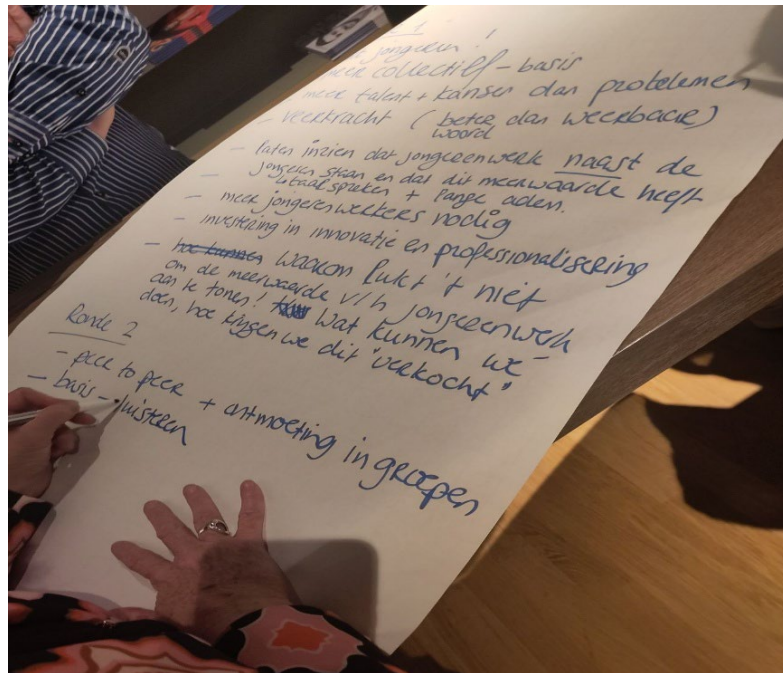 jongeren!
meer collectief - basis
- meer talent + kansen dan problemen
- veerkracht (beter dan weerbaar)
woord
- laten inzien dat jongerenwerk naast de
jongeren staan en dat dit meerwaarde heeft
- straattaal spreken + lange adem.
- meer jongerenwerkers nodig
- investering in innovatie en professionalisering
- hoe kunnen waarom lukt 't niet
om de meerwaarde v/h jongerenwerk
aan te tonen! Wat kunnen we
doen, hoe krijgen we dit "verkocht"
Ronde 2
- peer to peer
- basis - luisteren + ontmoeting in groepen